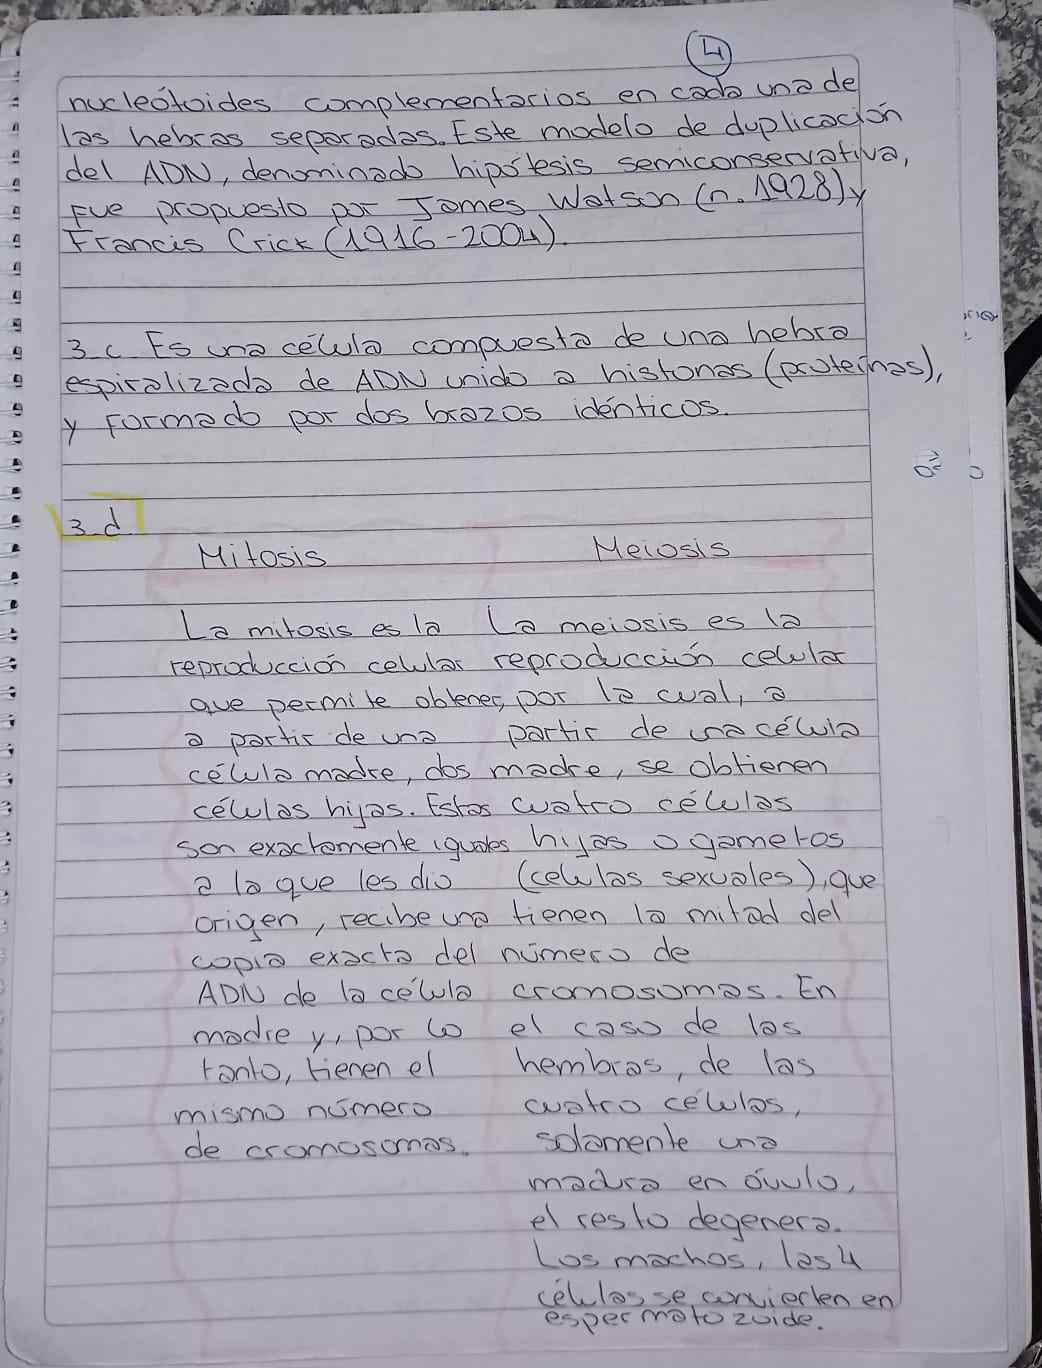 4
nucleótoides complementarios en cada una de
las hebras separadas. Este modelo de duplicación
del ADN, denominado hipótesis semiconservativa,
fue propuesto por James Watson (n. 1928) y
Francis Crick (1916-2004).
3_c Es una célula compuesta de una hebra
espiralizada de ADN unido a histonas (proteínas),
y formado por dos brazos idénticos.
3_d
Mitosis
La mitosis es la
reproducción celular
que permite obtener,
a partir de una
célula madre, dos
células hijas. Estas
son exactamente iguales
a la que les dio
origen, recibe una
copia exacta del
ADN de la célula
madre y, por lo
tanto, tienen el
mismo número
de cromosomas.
Meiosis
La meiosis es la
reproducción celular
por la cual, a
partir de una célula
madre, se obtienen
cuatro células
hijas o gametos
(celulas sexuales), que
tienen la mitad del
número de
cromosomas. En
el caso de las
hembras, de las
cuatro células,
solamente una
madura en óvulo,
el resto degenera.
Los machos, las 4
células se convierten en
espermatozoide.